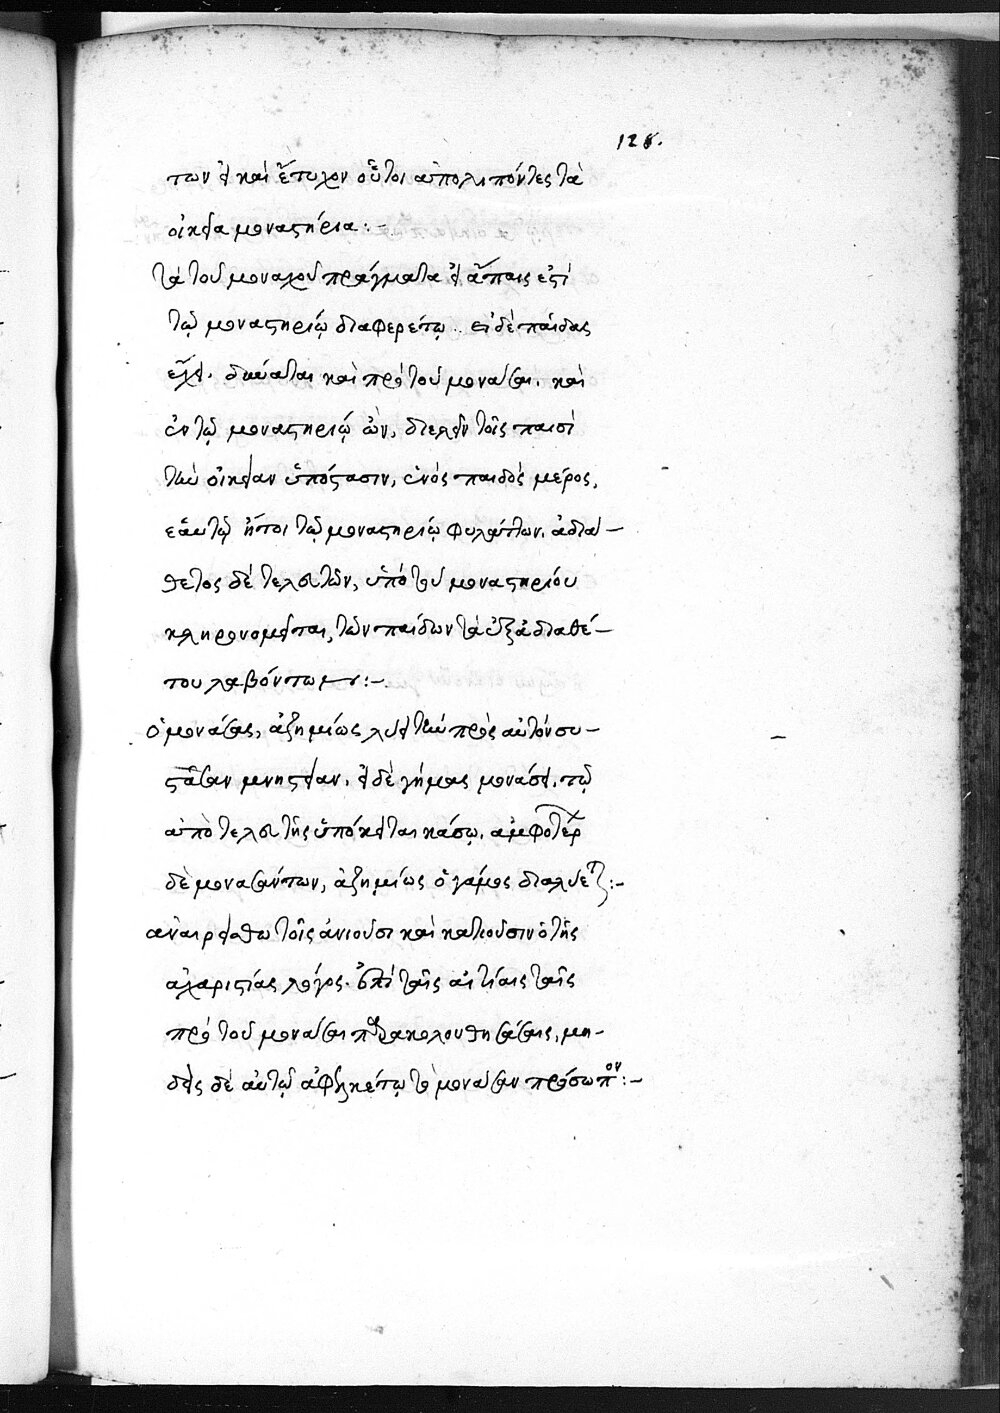 128.
των εἰ καὶ ἔτυχον οὗτοι ἀπολιπόντες τὰ
οἰκεῖα μοναστήρια:-
τὰ τοῦ μοναχοῦ πράγματα εἰ ἄπαις ἐστὶ
τῷ μοναστηρίῳ διαφερέτω. εἰ δὲ παῖδας
εἶχε. δύναται καὶ πρὸ τοῦ μονάσαι. καὶ
ἐν τῷ μοναστηρίῳ ὢν, διελεῖν τοῖς παισὶ
τὴν οἰκείαν ὑπόστασιν, ἑνὸς παιδὸς μέρος,
ἑαυτῷ ἤτοι τῷ μοναστηρίῳ φυλάττων. ἀδιά-
θετος δὲ τελευτῶν, ὑπὸ τοῦ μοναστηρίου
κληρονομεῖται, τῶν παίδων τὰ ἐξ ἀδιαθέ-
του λαβόντων:-
ὁ μονάσας, ἀζημίως λύει τὴν πρὸς αὐτὸν συ-
στᾶσαν μνηστείαν. εἰ δὲ γήμας μονάσει. τῷ
ἀπὸ τελευτῆς ὑπόκειται κάσῳ. ἀμφοτέρ
δὲ μονασάντων, ἀζημίως ὁ γάμος διαλύεται:-
ἀναιρείσθω τοῖς ἀνιοῦσι καὶ κατιοῦσιν ὁ τῆς
ἀχαριστίας λόγος. ἐπὶ ταῖς αἰτίαις ταῖς
πρὸ τοῦ μονάσαι παρακολουθησάσαις, μη-
δεὶς δὲ αὐτῷ ἀφελκέτω τὸ μονάσαν πρόσωπον:-